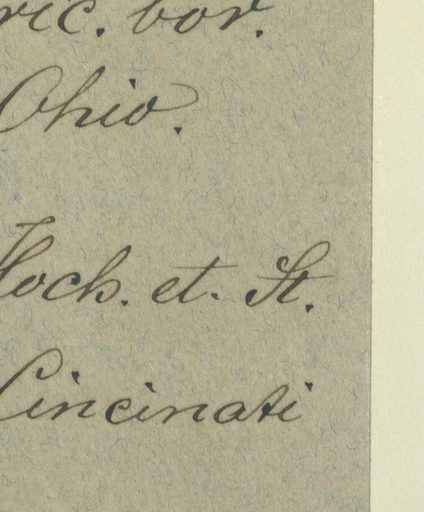 ric. bor.
Ohio.
Hoch. et. St.
Cincinati